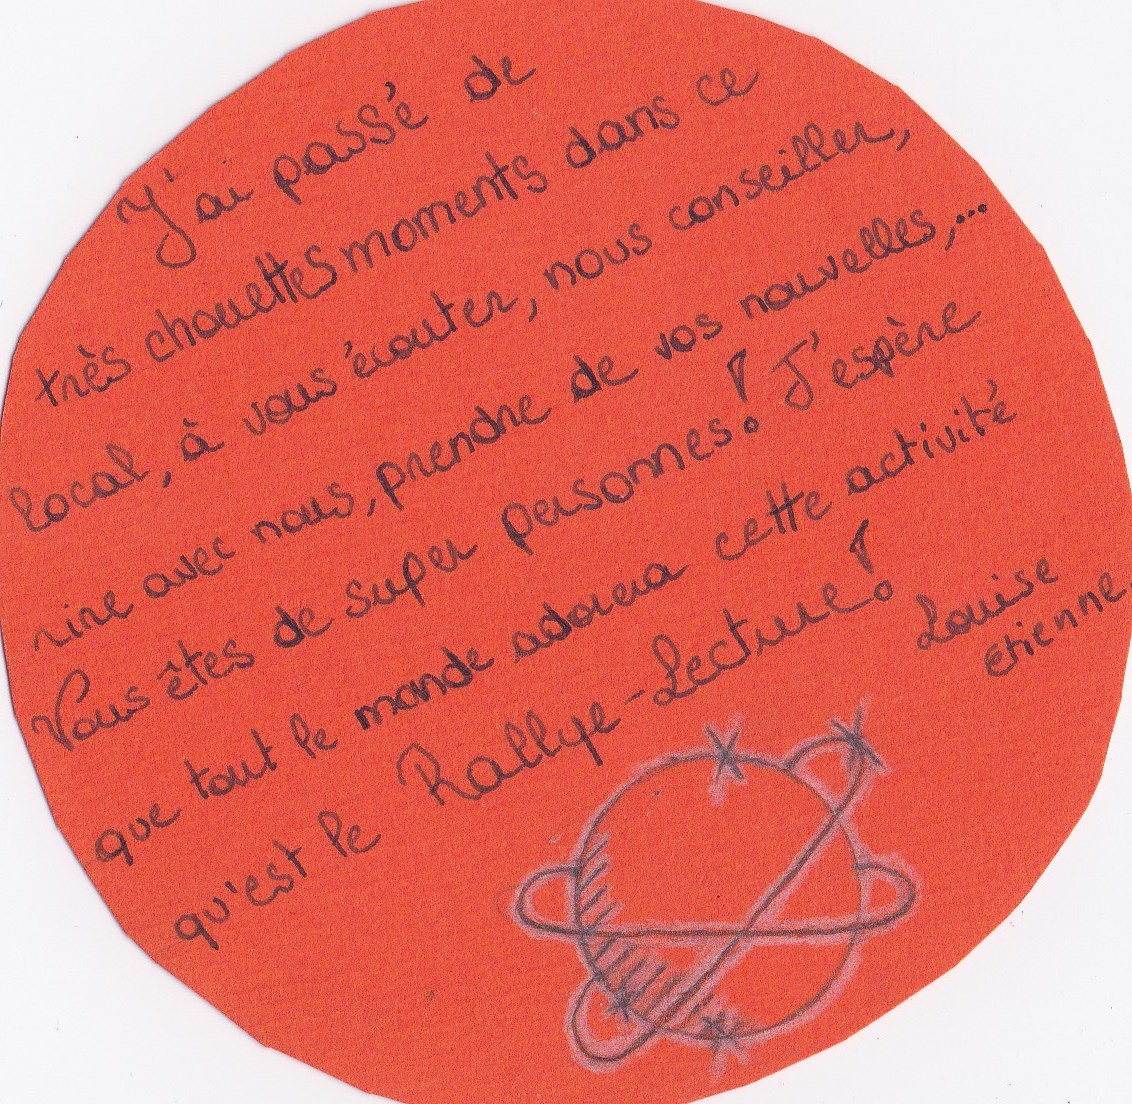 J'ai passé de
très chouettes moments dans ce
local, à vous écouter, nous conseiller,
rire avec nous, prendre de vos nouvelles,...
Vous êtes de super personnes! J'espère
que tout le monde adorera cette activité
qu'est le Rallye-Lecture!
Louise
etienne.